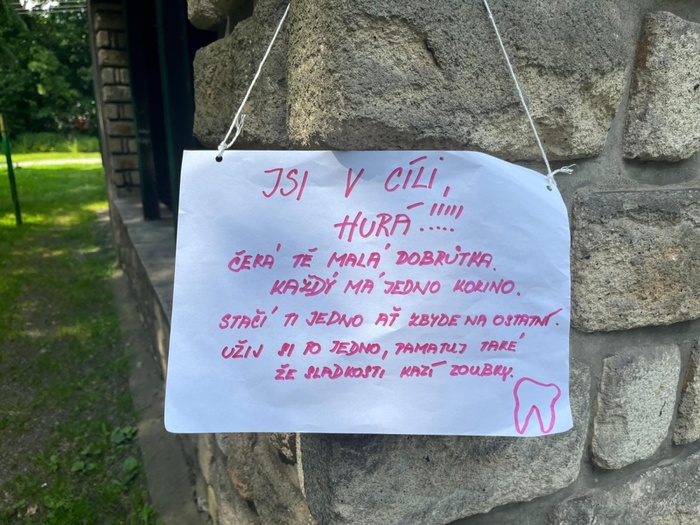 JSI V CÍLI,
HURÁ !!!!!
ČEKÁ TĚ MALÁ DOBRŮTKA.
KAŽDÝ MÁ JEDNO KOKINO.
STAČÍ TI JEDNO AŤ ZBYDE NA OSTATNÍ.
UŽIJ SI TO JEDNO, PAMATUJ TAKÉ
ŽE SLADKOSTI KAZÍ ZOUBKY.